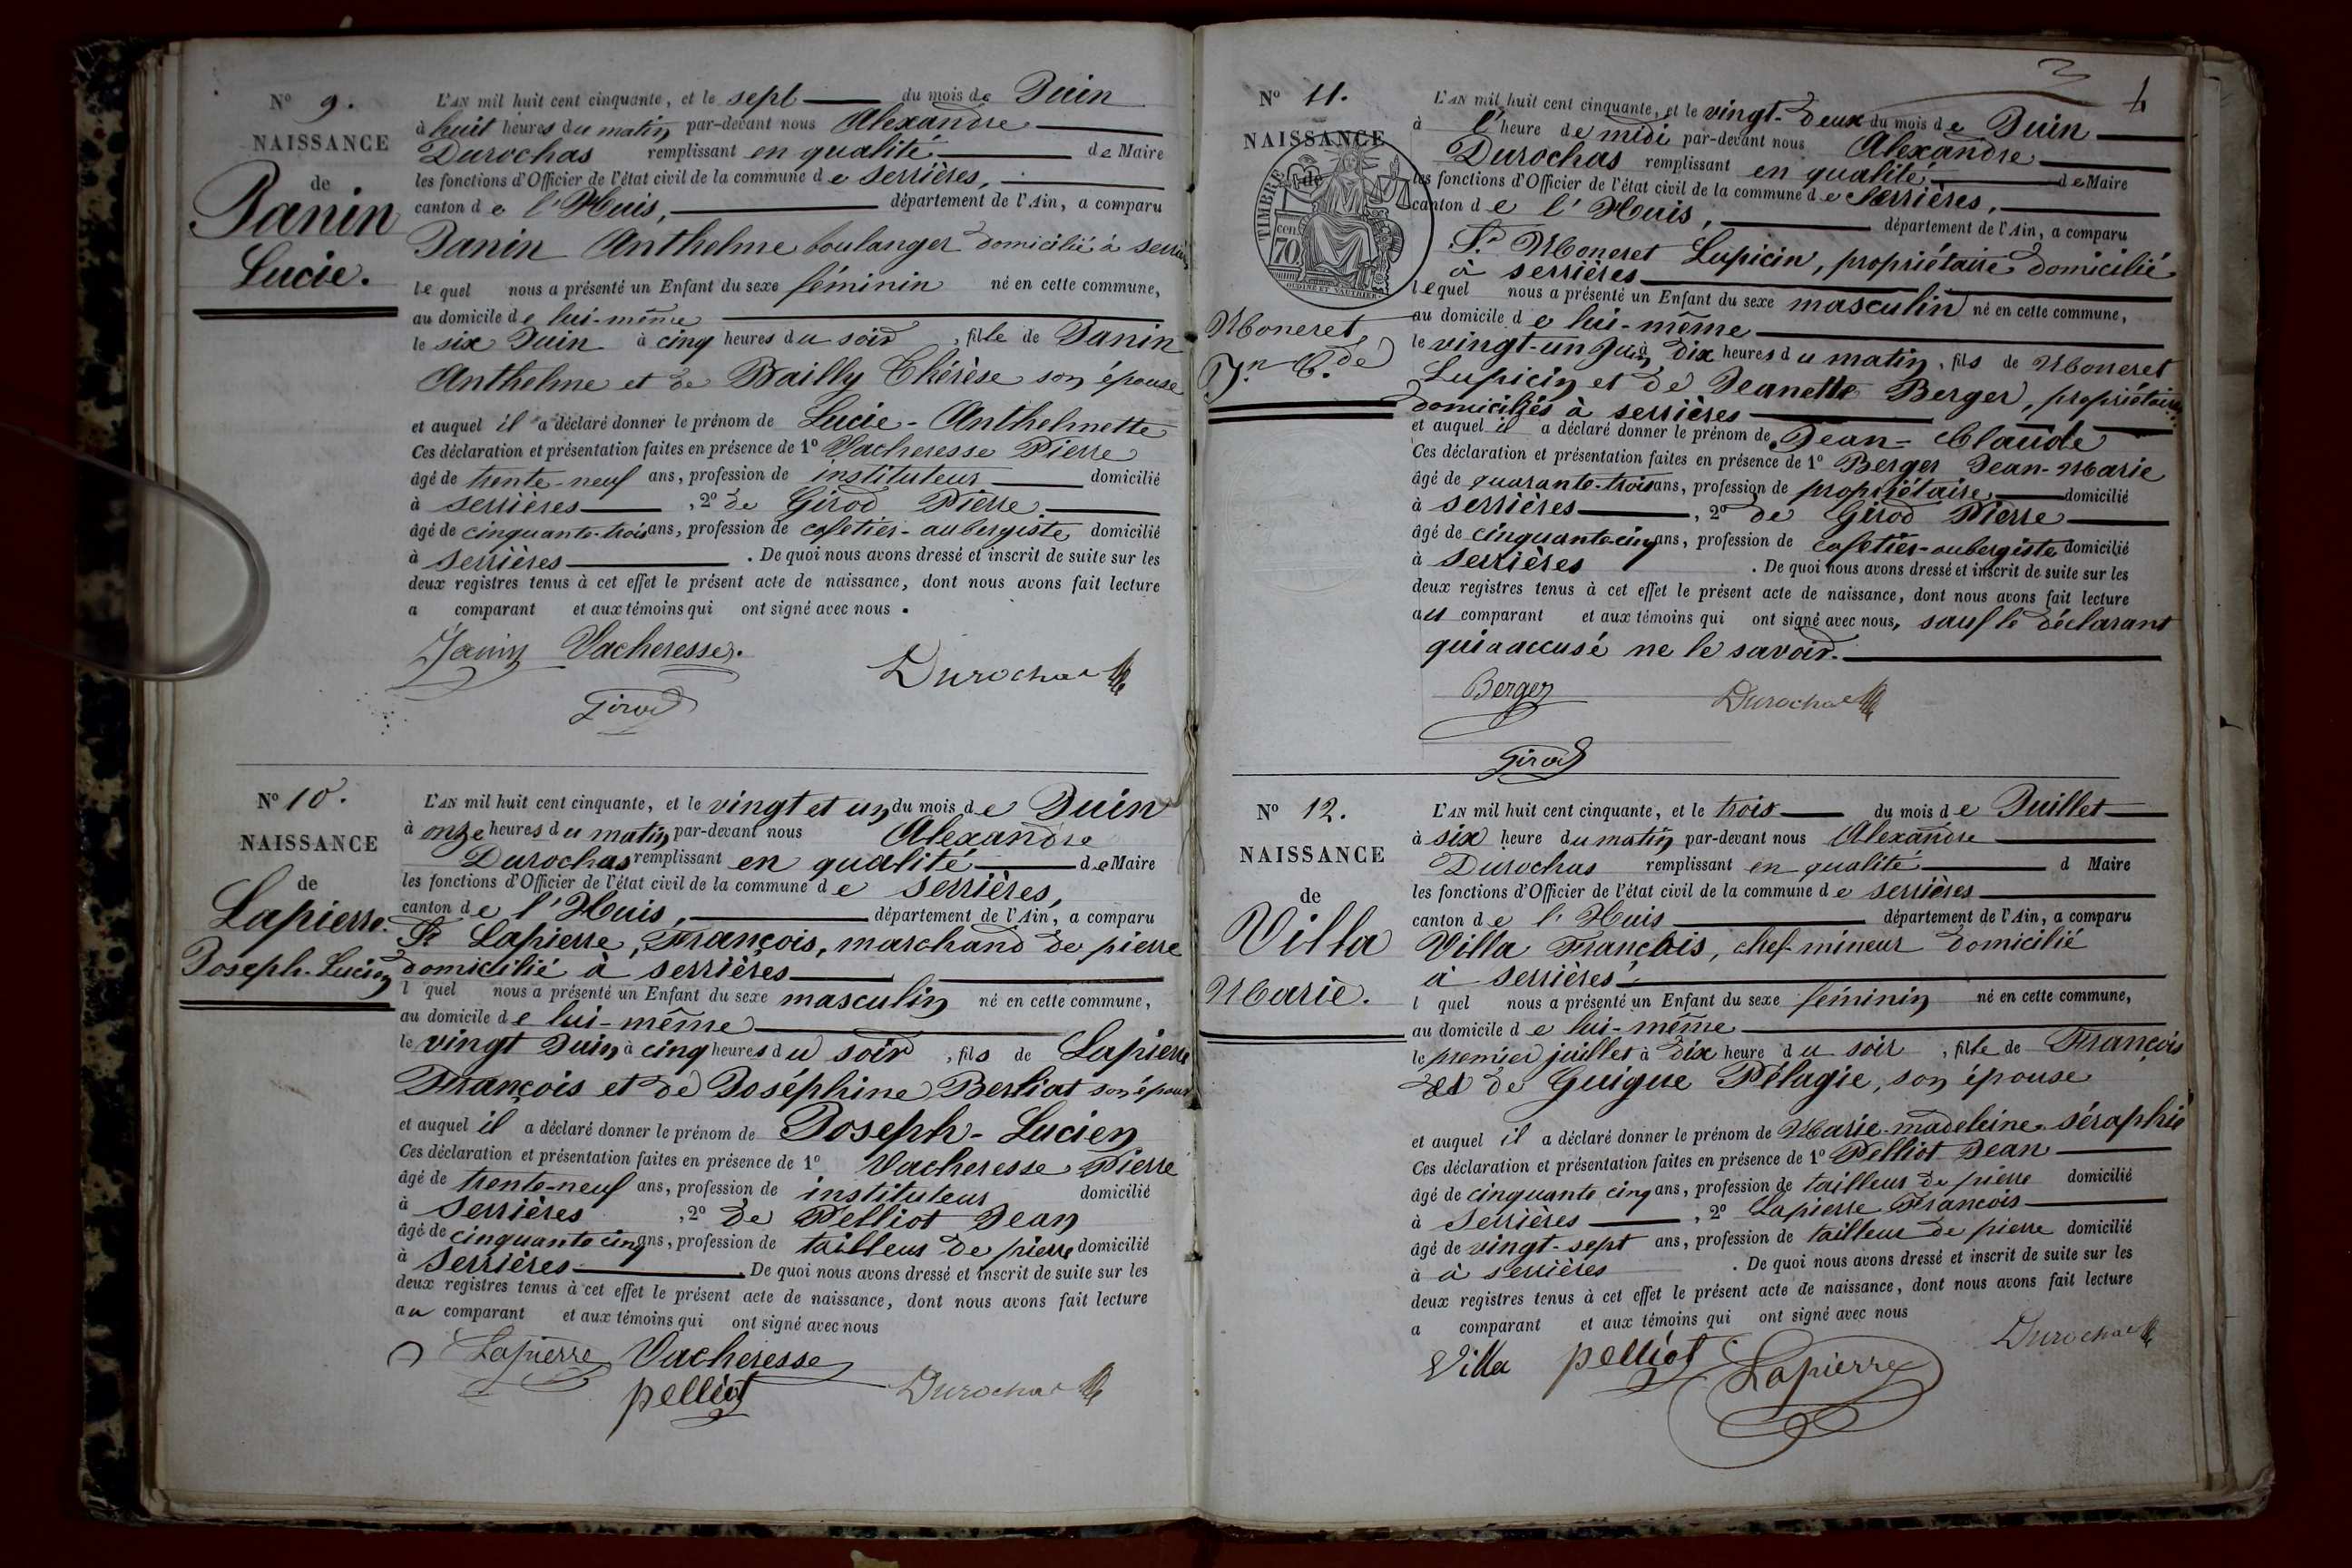 N° 9.
NAISSANCE
de
Janin
Lucie.
L'AN mil huit cent cinquante, et le sept du mois de Juin
à huit heures du matin par-devant nous Alexandre
Durochas remplissant en qualité de Maire
les fonctions d'Officier de l'état civil de la commune de Serrières,
canton de l'Huis, département de l'Ain, a comparu
Janin Anthelme boulanger domicilié à serrières
lequel nous a présenté un Enfant du sexe féminin né en cette commune,
au domicile de lui-même
le six Juin à cinq heures du soir, fille de Janin
Anthelme et de Bailly Thérèse son épouse
et auquel il a déclaré donner le prénom de Lucie-Anthelmette
Ces déclaration et présentation faites en présence de 1° Vacheresse Pierre
âgé de trente-neuf ans, profession de instituteur domicilié
à serrières, 2° de Girod Pierre
âgé de cinquante-trois ans, profession de cafetier-aubergiste domicilié
à serrières. De quoi nous avons dressé et inscrit de suite sur les
deux registres tenus à cet effet le présent acte de naissance, dont nous avons fait lecture
a comparant et aux témoins qui ont signé avec nous.
Janin Vacheresse.
Durochas
Girod
N° 10.
NAISSANCE
de
Lapierre.
Joseph-Lucien
L'AN mil huit cent cinquante, et le vingt et un du mois de Juin
à onze heures du matin par-devant nous Alexandre
Durochas remplissant en qualité de Maire
les fonctions d'Officier de l'état civil de la commune de serrières,
canton de l'Huis, département de l'Ain, a comparu
Sr Lapierre, François, marchand de pierre
domicilié à serrières
l quel nous a présenté un Enfant du sexe masculin né en cette commune,
au domicile de lui-même
le vingt Juin à cinq heures du soir, fils de Lapierre
François et de Joséphine Berliat son épouse
et auquel il a déclaré donner le prénom de Joseph-Lucien
Ces déclaration et présentation faites en présence de 1° Vacheresse Pierre
âgé de trente-neuf ans, profession de instituteur domicilié
à serrières, 2° de Pelliot Jean
âgé de cinquante cinq ans, profession de tailleur de pierre domicilié
à serrières. De quoi nous avons dressé et inscrit de suite sur les
deux registres tenus à cet effet le présent acte de naissance, dont nous avons fait lecture
au comparant et aux témoins qui ont signé avec nous
Lapierre Vacheresse
pelliot Durochas
N° 11.
NAISSANCE
de
TIMBRE
70 cen.
OUDINÉ ET VAUTHIER
Moneret,
Jn Cde
L'AN mil huit cent cinquante, et le vingt-deux du mois de Juin
à l'heure de midi par-devant nous Alexandre
Durochas remplissant en qualité de Maire
les fonctions d'Officier de l'état civil de la commune de Serrières,
canton de l'Huis, département de l'Ain, a comparu
Sr Moneret Lupicin, propriétaire domicilié
à serrières
lequel nous a présenté un Enfant du sexe masculin né en cette commune,
au domicile de lui-même
le vingt-un Juin à dix heures du matin, fils de Moneret
Lupicin et de Jeanette Berger, propriétaires
domiciliés à serrières
et auquel il a déclaré donner le prénom de Jean-Claude
Ces déclaration et présentation faites en présence de 1° Berger Jean-Marie
âgé de quarante-trois ans, profession de propriétaire domicilié
à serrières, 2° de Girod Pierre
âgé de cinquante-cinq ans, profession de cafetier-aubergiste domicilié
à serrières. De quoi nous avons dressé et inscrit de suite sur les
deux registres tenus à cet effet le présent acte de naissance, dont nous avons fait lecture
au comparant et aux témoins qui ont signé avec nous, sauf le déclarant
qui a accusé ne le savoir.
Berger Durochas
Girod
N° 12.
NAISSANCE
de
Villa
Marie.
L'AN mil huit cent cinquante, et le trois du mois de Juillet
à six heure du matin par-devant nous Alexandre
Durochas remplissant en qualité d Maire
les fonctions d'Officier de l'état civil de la commune de serrières
canton de l'Huis département de l'Ain, a comparu
Villa François, chef-mineur domicilié
à serrières
l quel nous a présenté un Enfant du sexe féminin né en cette commune,
au domicile de lui-même
le premier juillet à dix heure du soir, fille de François
et de Guigue Pélagie, son épouse
et auquel il a déclaré donner le prénom de Marie-madeleine-séraphie
Ces déclaration et présentation faites en présence de 1° Pelliot Jean
âgé de cinquante cinq ans, profession de tailleur de pierre domicilié
à serrières, 2° Lapierre François
âgé de vingt-sept ans, profession de tailleur de pierre domicilié
à à serrières. De quoi nous avons dressé et inscrit de suite sur les
deux registres tenus à cet effet le présent acte de naissance, dont nous avons fait lecture
a comparant et aux témoins qui ont signé avec nous
Villa pelliot Lapierre Durochas